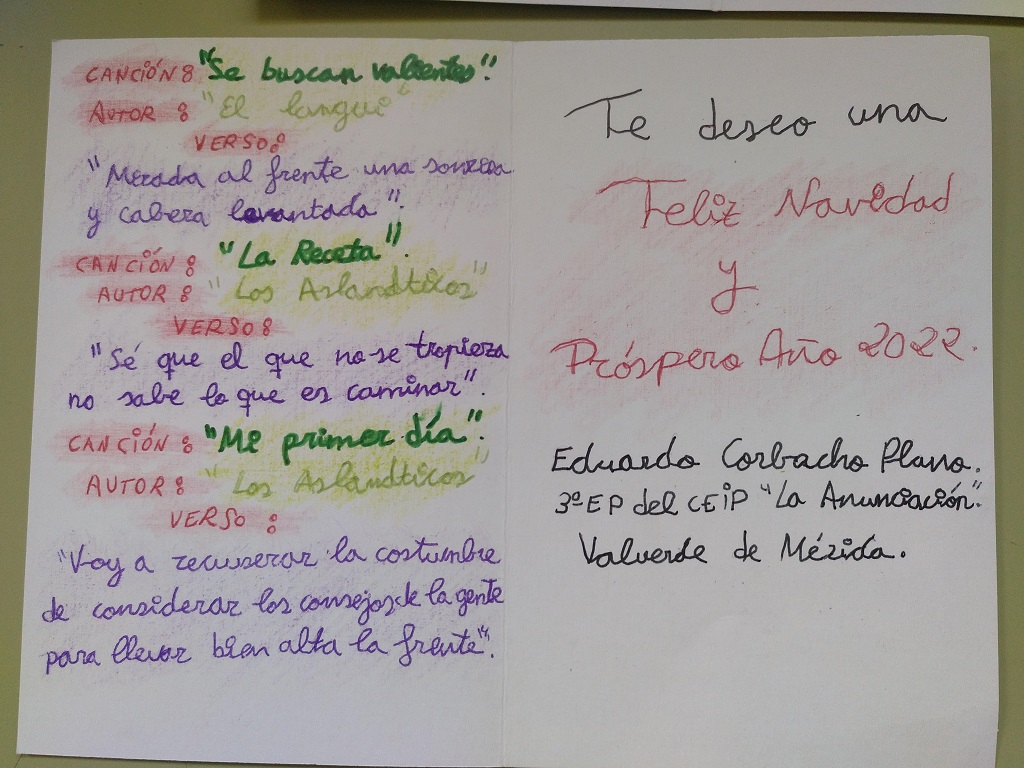 CANCIÓN: "Se buscan valientes".
AUTOR: "El langui"
VERSO:
"Mirada al frente una sonrisa
y cabeza levantada".
CANCIÓN: "La Receta".
AUTOR: "Los Aslandticos"
VERSO:
"Sé que el que no se tropieza
no sabe lo que es caminar".
CANCIÓN: "Mi primer día".
AUTOR: "Los Aslandticos"
VERSO:
"Voy a recuserar la costumbre
de considerar los consejos de la gente
para llevar bien alta la frente".
Te deseo una
Feliz Navidad
y
Próspero Año 2022.
Eduardo Corbacho Plano.
3º EP del CEIP "La Anunciación".
Valverde de Mérida.